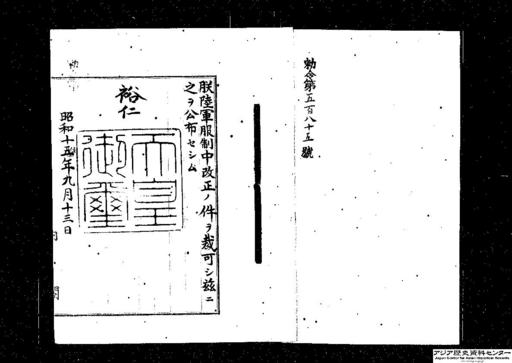 勅令第五百八十五號
朕陸軍服制中改正ノ件ヲ裁可シ玆ニ
之ヲ公布セシム
裕仁
天皇御璽
昭和十五年九月十三日
内閣
アジア歴史資料センター
Japan Center for Asian Historical Records